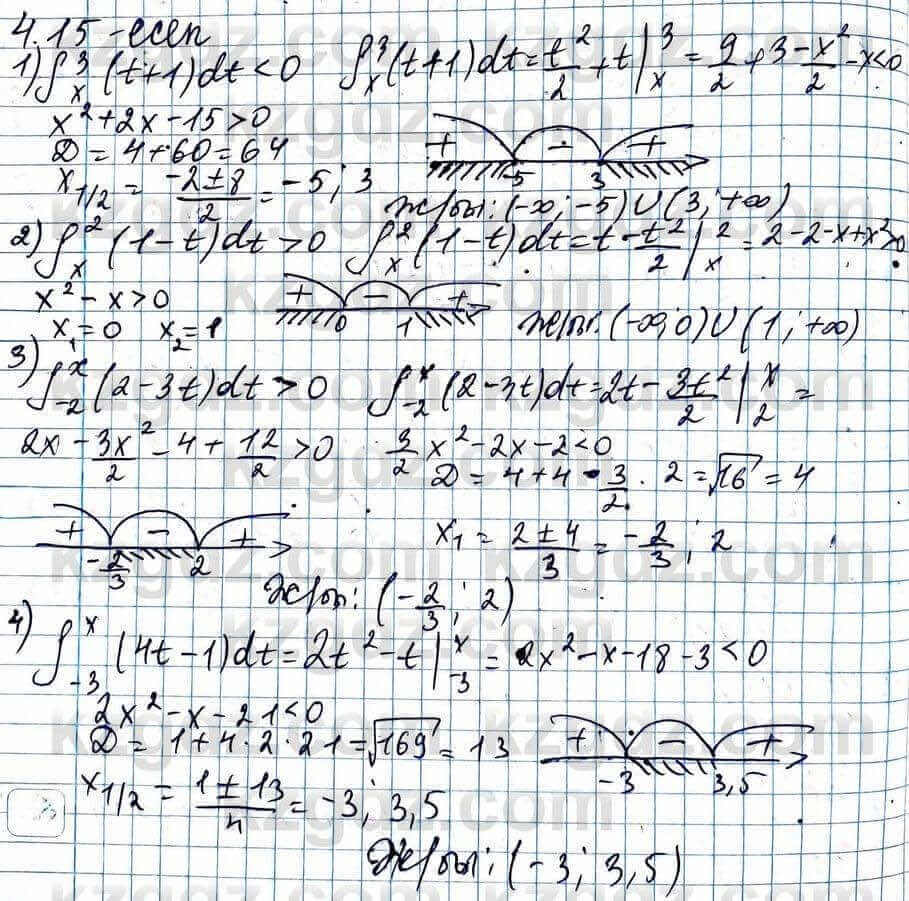 4.15-есеп
1) ∫ₓ³ (t+1)dt<0 ∫ₓ³(t+1)dt=t²/2+t|ₓ³=9/2+3-x²/2-x<0
x²+2x-15>0
D=4+60=64 + - +
x1/2=(-2±8)/2=-5; 3 -5 3
Жауабы: (-∞; -5)∪(3; +∞)
2) ∫ₓ² (1-t)dt>0 ∫ₓ² (1-t)dt=t-t²/2|ₓ²=2-2-x+x²>0
x²-x>0 + - +
x₁=0 x₂=1 0 1 Жауабы: (-∞; 0)∪(1; +∞)
3) ∫₋₂ˣ (2-3t)dt>0 ∫₋₂ˣ (2-3t)dt=2t-3t²/2|₂ˣ=
2x-3x²/2-4+12/2>0 3/2x²-2x-2<0
D=4+4·3/2·2=√16=4
+ - + x₁=(2±4)/3=-2/3; 2
-2/3 2
Жауабы: (-2/3; 2)
4) ∫₋₃ˣ (4t-1)dt=2t²-t|₋₃ˣ=2x²-x-18-3<0
2x²-x-21<0
D=1+4·2·21=√169=13 + - +
x1/2=(1±13)/4=-3; 3,5 -3 3,5
Жауабы: (-3; 3,5)
kzgdz.com